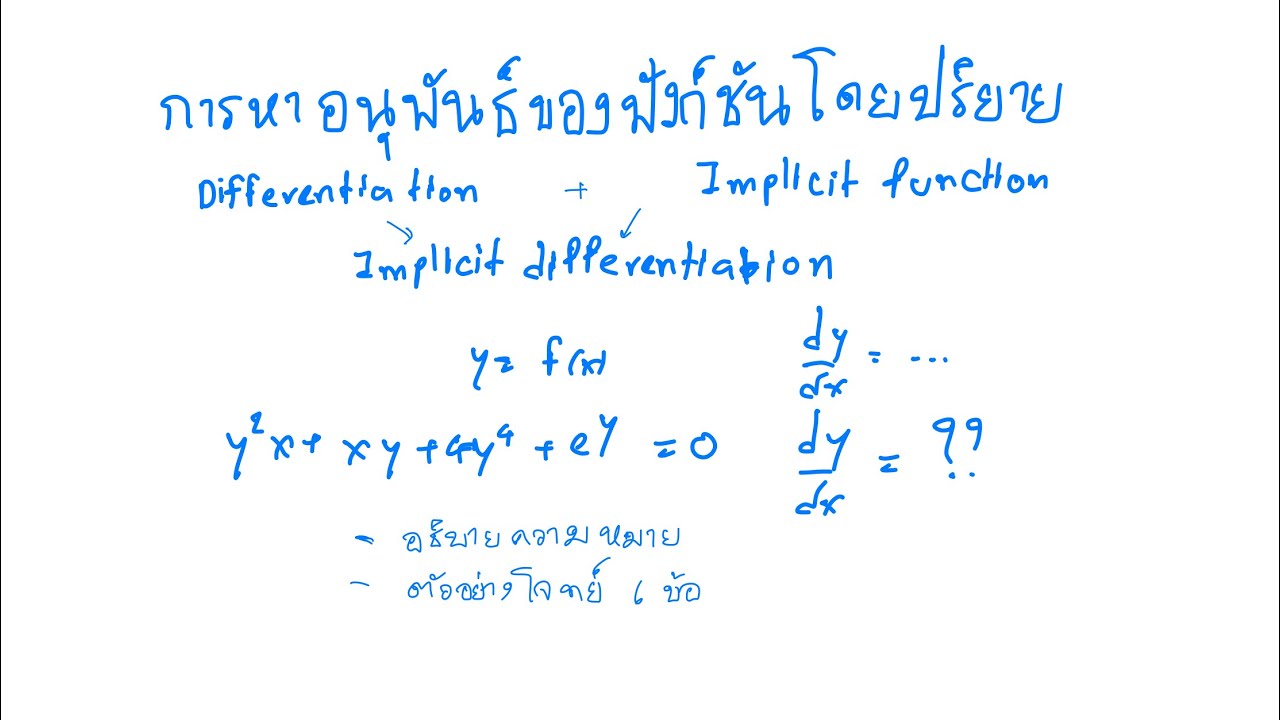 การหาอนุพันธ์ของฟังก์ชันโดยปริยาย
Differentiation + Implicit function
Implicit differentiation
y = f(x) dy/dx = ...
y²x + xy + 4y⁴ + e^y = 0 dy/dx = ??
- อธิบายความหมาย
- ตัวอย่างโจทย์ 6 ข้อ